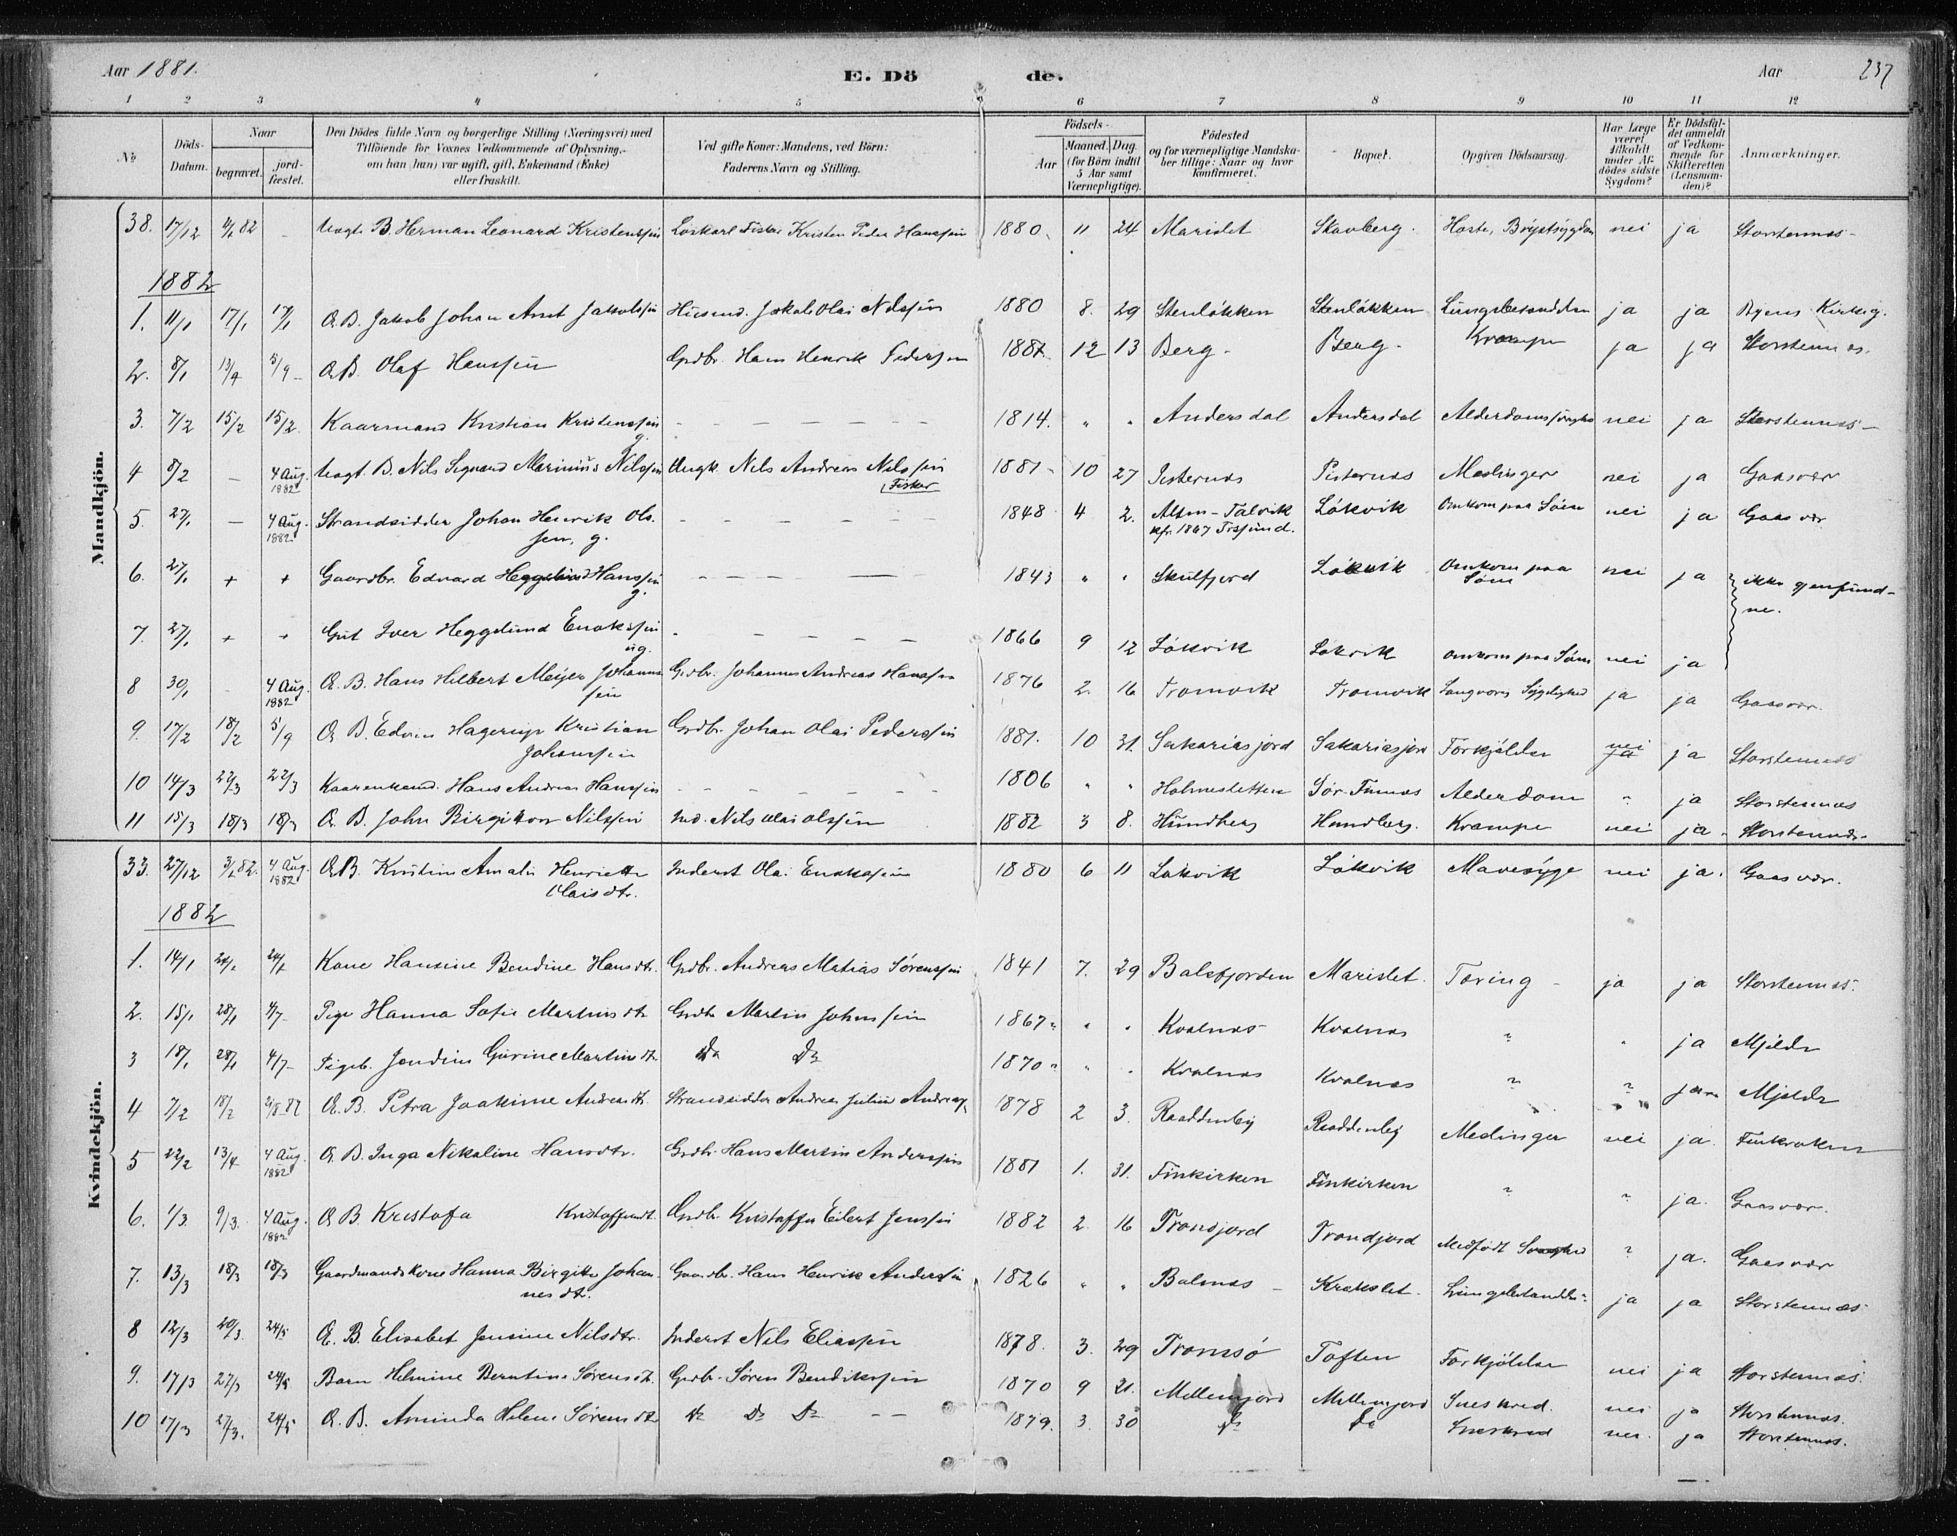 Aar 1881. E. Dö de. Aar 237
1 2 3 4 5 6 7 8 9 10 11 12
No. Döds-Datum. Naar begravet. jordfæstet. Den Dödes fulde Navn og borgerlige Stilling (Næringsvei) med Tilföiende for Voxnes Vedkommende af Oplysning, om han (hun) var ugift, gift, Enkemand (Enke) eller fraskilt. Ved gifte Koner: Mandens, ved Börn: Faderens Navn og Stilling. Födsels- Aar Maaned. Dag. (for Börn indtil 5 Aar samt Værnepligtige). Födested og for værnepligtige Mandskaber tillige: Naar og hvor konfirmeret. Bopæl. Opgiven Dödsaarsag. Har Læge været tilkaldt under Afdödes sidste Sygdom? Er Dödsfaldet anmeldt af Vedkommende for Skifteretten (Lensmanden)? Anmærkninger.
Mandkjön.
38. 17/12 82 - Uægte B. Herman Leonard Kristenssen Löskarl Fisker Kristen Peder Hanssen 1880. 11 24 Marislet Skavberg. Hoste, Brystsygdom nei ja Storstennæs-
1882
1. 11/1 17/1 17/1 Æ. B. Jakob Johan Arnt Jakobssen Husmd. Jakob Olai Nilssen 1880 8. 29 Stenlökken Stenlökken Lungebetændelse ja ja Byens Kirkeg.
2. 8/1 13/4 5/9 - Æ B. Olaf Hanssen Grdbr. Hans Henrik Pederssen 1881 12 13 Berg. Berg. Krampe ja ja Storstennæs.
3. 7/2 15/2 15/2 Kaarmand Kristian Kristenssen g. - - - 1814. " " Andersdal Andersdal Alderdomssvaghed nei ja Storstennæs-
4 8/2 - 4 Aug. 1882 Uægt. B. Nils Sigvard Marinius Nilssen Ungk. Nils Andreas Nilssen Fisker 1881- 10 27 Pisternæs Meslinger nei ja Gaasvær
5. 27/1 - 4 Aug. 1882 Strandsidder Johan Henrik Olssen, g. - - - 1848 4 2. Alten-Talvik kfr. 1867 Lökvik Omkom paa Söen nei ja Gaasvær
6. 27/1 + + Gaardbr. Edvard Heggelund Hanssen g. - - - 1843 " " Skulfjord Lökvik Omkom paa Söen nei ja ikke gjenfundne.
7. 27/1 + + Gut Iver Heggelund Enokssen ug. - - - 1866 9 12 Lökvik Lökvik omkom paa Söen nei ja
8 30/1 - 4 Aug. 1882 Æ. B. Hans Hilbert Meyer Johannessen Grdbr. Johannes Andreas Hanssen 1876 2. 16 Tromvik Tromvik Langvarig Sygelighed ja ja Gaasvær.
9. 17/2 18/2 5/9 Æ B. Edvin Hagerup Kristian Johanssen Grdbr. Johan Olai Pederssen 1881. 10 31. Sakariasjord Sakariasjord Forkjölelse nei ja Storstennæs
10 14/3 22/3 22/3 Kaarenkemd. Hans Andreas Hanssen - - - 1806 " " Holmesletten Sör-Finnæs Alderdom " ja Storstennæs
11 15/3 18/3 18/3 Æ. B. John Birgithon Nilssen Ind. Nils Olai Olssen 1882 3 8. Hundberg Hundberg. Krampe nei ja. Storstennæs.
Kvindekjön.
33. 27/12 82. 4 Aug. 1882 Æ B. Kristine Amalie Henriette Olaisdtr. Inderst Olai Enokssen 1880 6 11 Lökvik Lökvik Mavesyge nei ja. Gaasvær.
1882
1. 14/1 24/1 24/1 Kone Hansine Bendine Hansdtr. Grdbr. Andreas Matias Sörenssen 1841 7. 29 Balsfjorden Marislet. Tæring - ja ja Storstennæs.
2. 15/1 28/1 4/7- Pige Hanna Sofie Martinsdtr Grdbr Martin Johnssen 1867 " " Kvalnæs Kvalnæs " " ja Mjelde
3 18/1 28/1 4/7- Pigeb. Jendine Gurine Martinsdtr. Do Do 1870 " " Kvalnæs Kvalnæs " " ja Mjelde
4 7/2 18/2 21/8 82 Æ. B. Petra Joakime Andreasdtr. Strandsidder Andreas Julius 1878 2 3. Meslinger nei ja. Finkroken
5 22/2 13/4 4 Aug. 1882 Æ. B. Inga Nikoline Hansdtr. Grdbr. Hans Martin Anderssen 1881 1. 31. Finkirken Finkirken " " ja. Gaasvær.
6. 1/3. 9/3. 4 Aug. 1882 Æ B. Kristofa Kristoffersdtr. Grdbr. Kristoffer Eilert Jenssen 1882 2. 16 Trondjord Trondjord Medfödt Svaghed " ja. Gaasvær
7. 13/3 18/3 18/3 Gaardmandskone Hanna Birgitte Johannesdtr. Gaardbr. Hans Henrik Anderssen 1826 " " Balsnæs - Krokslet. Lungebetændelse ja ja Storstennæs
8 12/3 20/3. 24/5 Æ. B Elisabet Jensine Nilsdtr. Inderst Nils Eliassen 1878. 3. 29 Tromsö Toften Forkjölelse nei ja Storstennæs.
9. 17/3 27/3 24/5 Barn Helmine Berntine Sörensdtr. Grdbr. Sören Bendikssen 1870 9 21. Mellemjord Mellemjord Sneskred. nei ja Storstennæs.
10 17/3 27/3. 24/5 Æ. B. Aminda Helene Sörensdtr do Do Do - - 1879. 3. 30 do do Sneskred nei. ja Storstennæs.